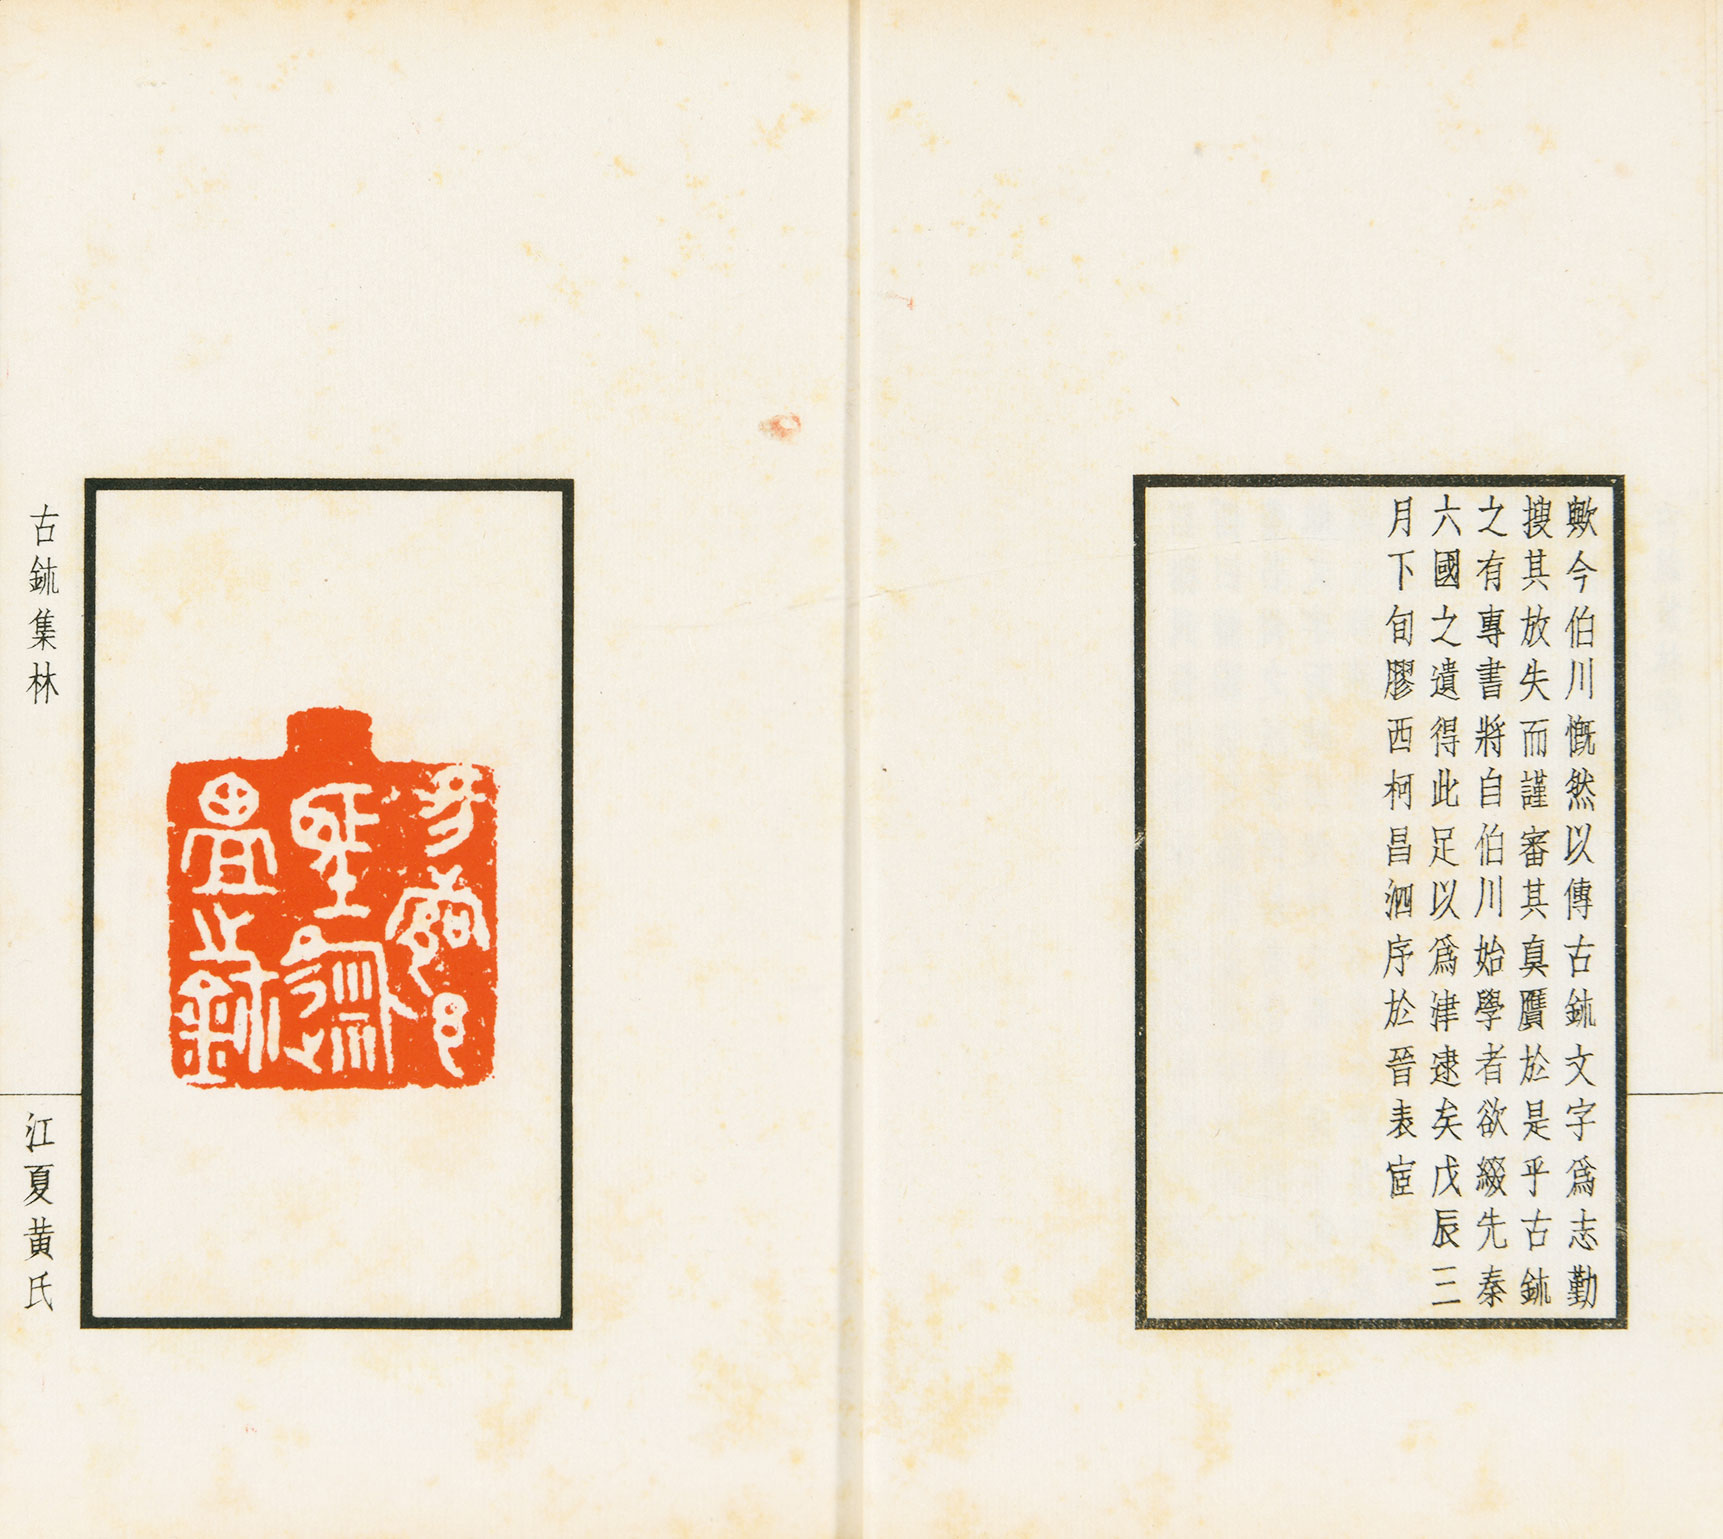 歟今伯川慨然以傳古鉥文字爲志勤
搜其放失而謹審其真贋於是乎古鉥
之有專書將自伯川始學者欲綴先秦
六國之遺得此足以爲津逮矣戊辰三
月下旬膠西柯昌泗序於晉表宧
古鉥集林
江夏黄氏